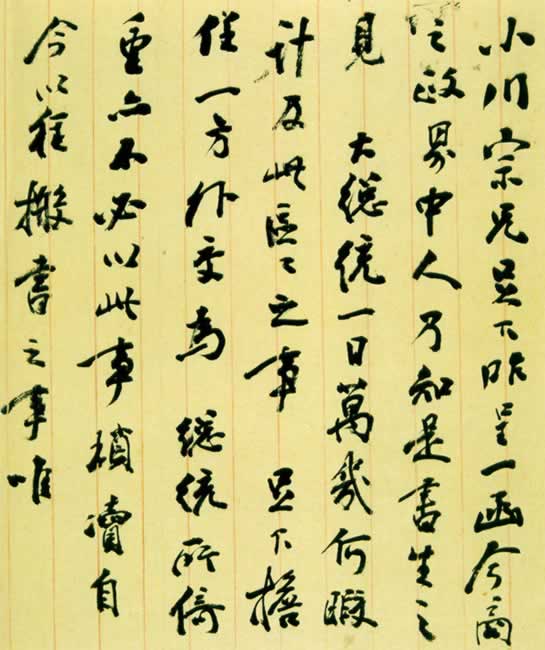 小川宗兄足下昨呈一函今商
之政界中人乃知是書生之
見 大總統一日萬幾何暇
計及此區〻之事 足下擔
任一方外交為 總統所倚
重亦不必以此事瀆自
今以往撤書之事唯